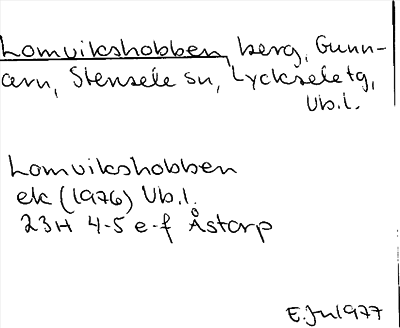 Lomvikshobben, berg, Gunn-
arn, Stensele sn, Lycksele tg,
Vb.l.
Lomvikshobben
ek (1976) Vb.l.
23H 4-5 e-f Åstorp
E.Ju 1977